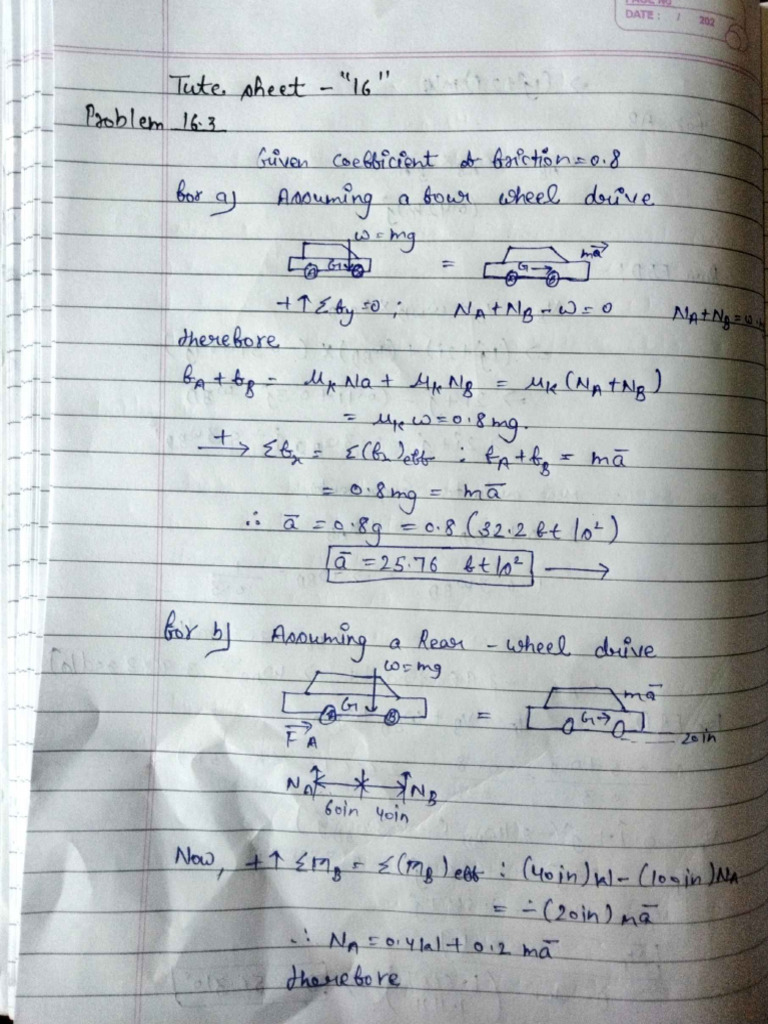 PAGE NO
DATE: / 202
Tute. sheet - "16"
Problem 16.3
Given coefficient of friction = 0.8
for a) Assuming a four wheel drive
w = mg
G A B = G A B mā
+↑ Σfy = 0 ; NA + NB - w = 0 NA + NB = w
therefore
fA + fB = μk Na + μk NB = μk (NA + NB)
= μk w = 0.8 mg.
+→ Σfx = Σ(fx)eff : fA + fB = mā
= 0.8 mg = mā
∴ ā = 0.8g = 0.8 (32.2 ft/s²)
ā = 25.76 ft/s² →
for b) Assuming a Rear - wheel drive
w = mg
G A B = G mā
F A 20in
NA NB
60in 40in
Now, +↑ ΣMB = Σ(MB)eff : (40in)W - (100in)NA
= - (20in) mā
∴ NA = 0.4W + 0.2 mā
therefore